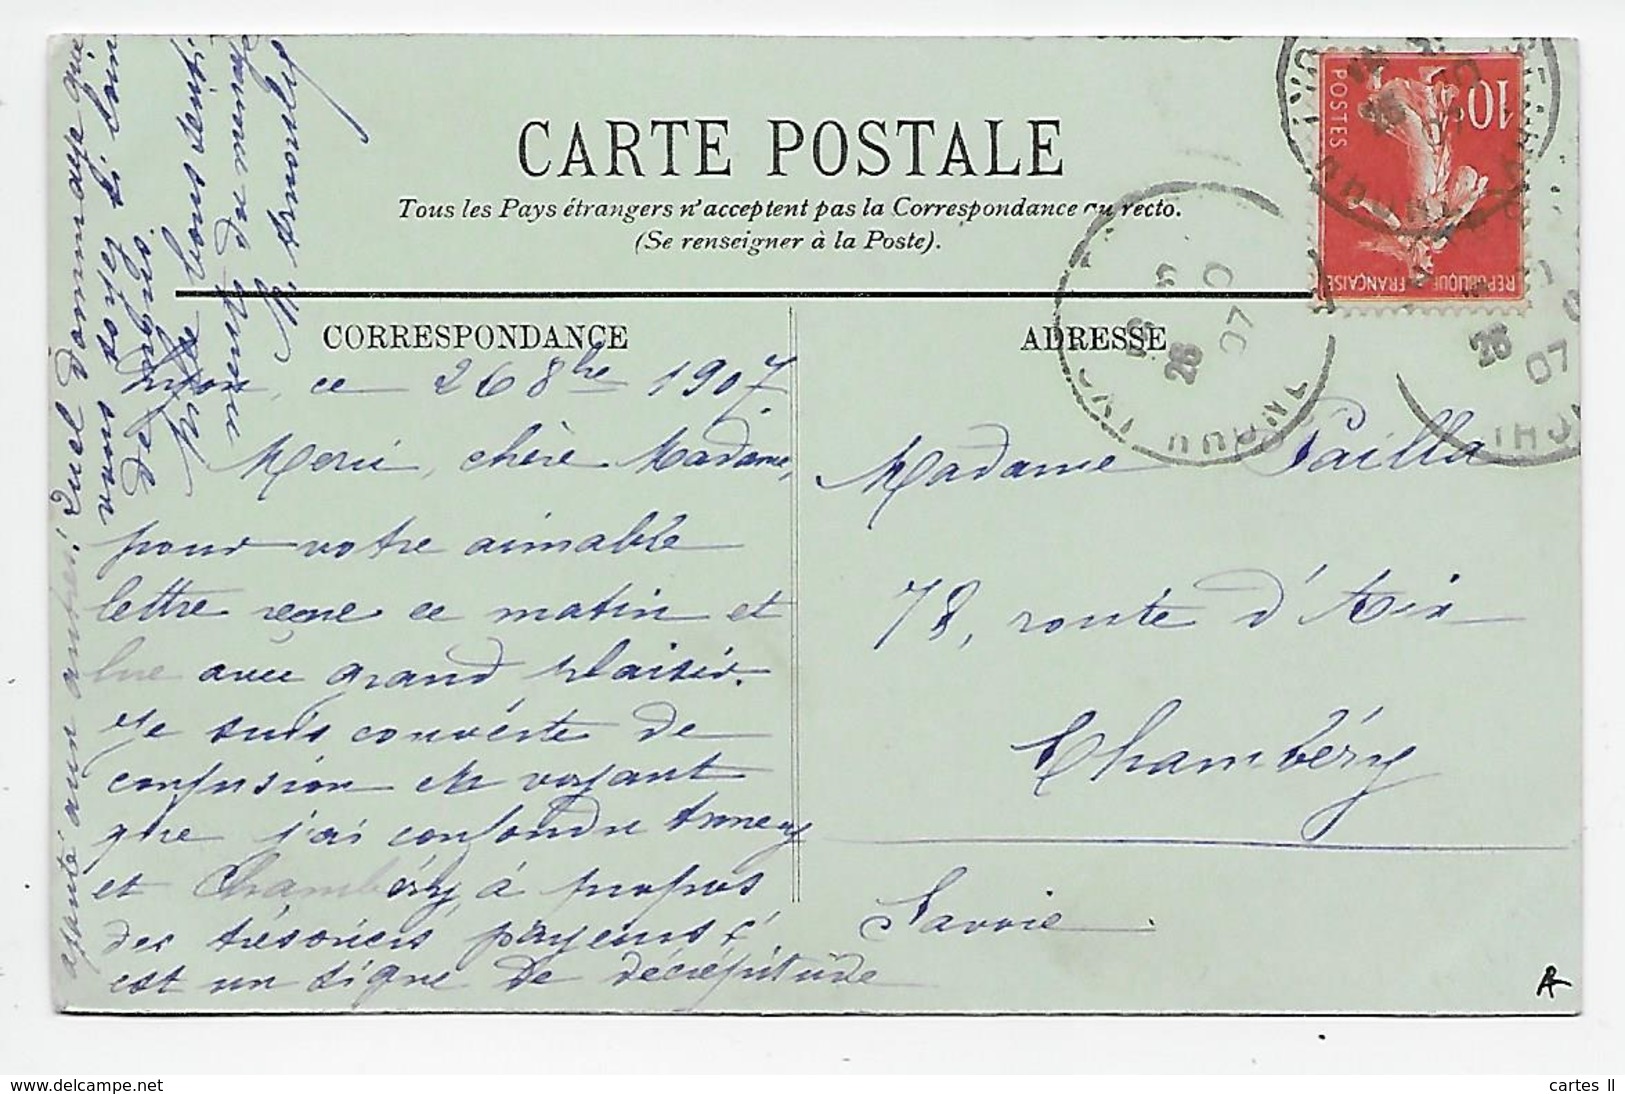 CARTE POSTALE
Tous les Pays étrangers n'acceptent pas la Correspondance au recto.
(Se renseigner à la Poste).
10c
POSTES
REPUBLIQUE FRANÇAISE
CORRESPONDANCE
ce 26 8bre 1907.
Merci, chère Madame,
pour votre aimable
lettre reçue ce matin et
lue avec grand plaisir.
Je suis couverte de
confusion en voyant
que j'ai confondu Annecy
et Chambéry à propos
des trésoriers payeurs c'
est un signe de décrépitude
ajouté aux autres! Quel dommage que
vous soyez si loin
de
bons senti
ments du ménage
ADRESSE
Madame Pailla
78, route d'Aix
Chambéry
Savoie.
26
07
26
07
delcampe.net
cartes II